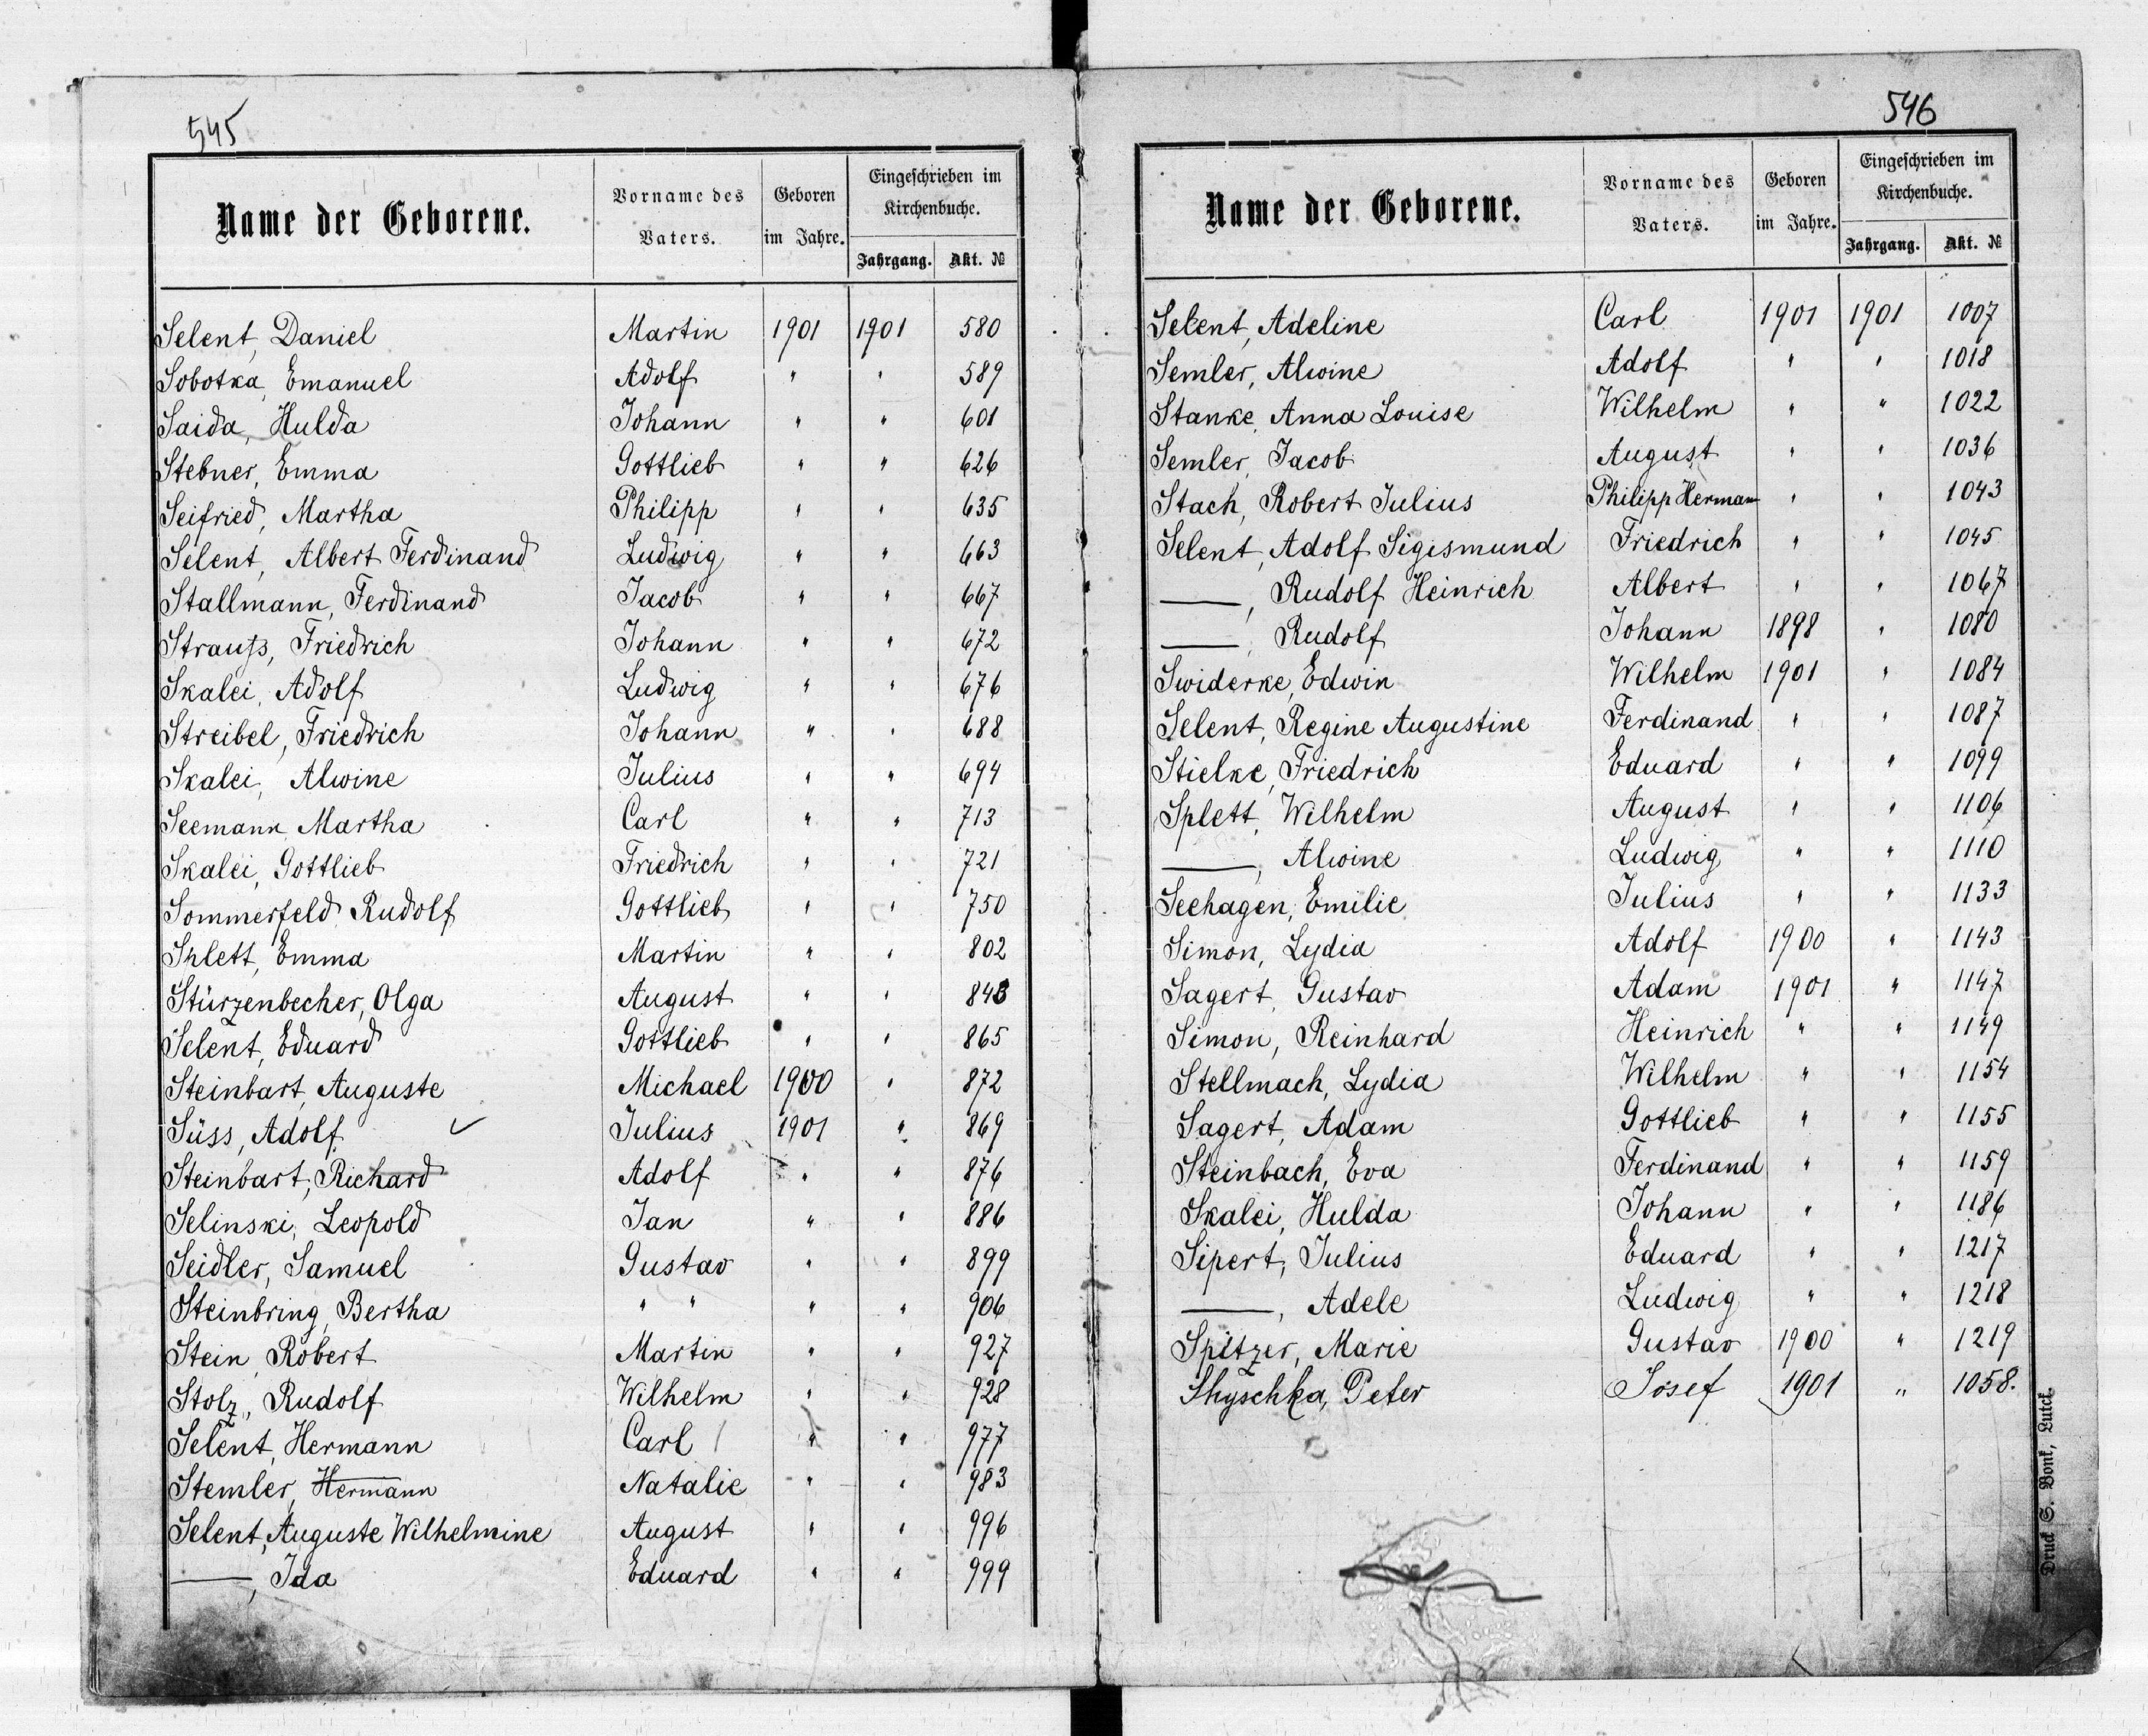 545
Name der Geborene. Vorname des Vaters. Geboren im Jahre. Eingeschrieben im Kirchenbuche. Jahrgang. Akt. №
Selent, Daniel Martin 1901 1901 580
Sobotka, Emanuel Adolf " " 589
Saida, Hulda Johann " " 601
Stebner, Emma Gottlieb " " 626
Seifried, Martha Philipp " " 635
Selent, Albert Ferdinand Ludwig " " 663
Stallmann, Ferdinand Jacob " " 667
Strauß, Friedrich Johann " " 672
Skalei, Adolf Ludwig " " 676
Streibel, Friedrich Johann " " 688
Skalei, Alwine Julius " " 694
Seemann Martha Carl " " 713
Skalei, Gottlieb Friedrich " " 721
Sommerfeld Rudolf Gottlieb " " 750
Shlett, Emma Martin " " 802
Stürzenbecher, Olga August " " 843
Selent, Eduard Gottlieb " " 865
Steinbart, Auguste Michael 1900 " 872
Süss, Adolf Julius 1901 " 869
Steinbart, Richard Adolf " " 876
Selinski, Leopold Jan " " 886
Seidler, Samuel Gustav " " 899
Steinbring, Bertha " " " " 906
Stein, Robert Martin " " 927
Stolz, Rudolf Wilhelm " " 928
Selent, Hermann Carl " " 977
Stemler, Hermann Natalie " " 983
Selent, Auguste Wilhelmine August " " 996
—, Ida Eduard " " 999
546
Name der Geborene. Vorname des Vaters. Geboren im Jahre. Eingeschrieben im Kirchenbuche. Jahrgang. Akt. №
Selent, Adeline Carl 1901 1901 1007
Semler, Alwine Adolf " " 1018
Stanke, Anna Louise Wilhelm " " 1022
Semler, Jacob August " " 1036
Stach, Robert Julius Philipp Hermann " " 1043
Selent, Adolf Sigismund Friedrich " " 1045
—, Rudolf Heinrich Albert " " 1067
—, Rudolf Johann 1898 " 1080
Swiderke, Edwin Wilhelm 1901 " 1084
Selent, Regine Augustine Ferdinand " " 1087
Stielke, Friedrich Eduard " " 1099
Splett, Wilhelm August " " 1106
—, Alwine Ludwig " " 1110
Seehagen, Emilie Julius " " 1133
Simon, Lydia Adolf 1900 " 1143
Sagert, Gustav Adam 1901 " 1147
Simon, Reinhard Heinrich " " 1149
Stellmach, Lydia Wilhelm " " 1154
Sagert, Adam Gottlieb " " 1155
Steinbach, Eva Ferdinand " " 1159
Skalei, Hulda Johann " " 1186
Sipert, Julius Eduard " " 1217
—, Adele Ludwig " " 1218
Spitzer, Marie Gustav 1900 " 1219
Shyschka, Peter Josef 1901 " 1058.
Druck S. Bonk, Lutck.